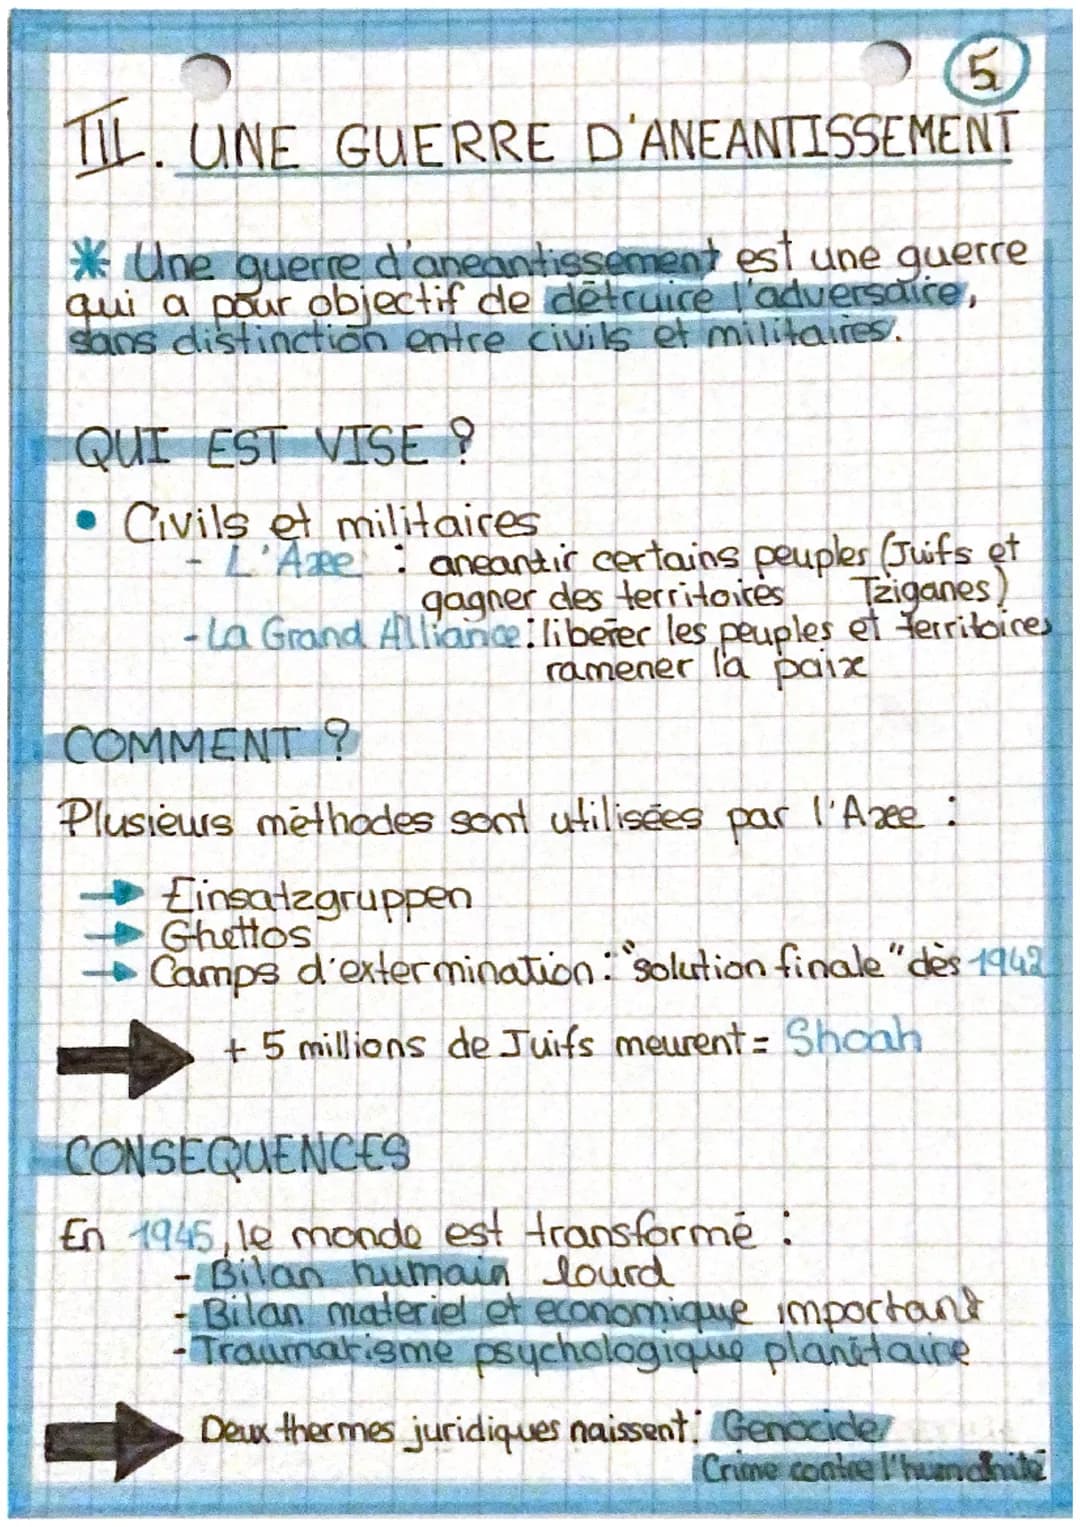 5
III. UNE GUERRE D'ANEANTISSEMENT
* Une guerre d'aneantissement est une guerre
qui a pour objectif de détruire l'adversaire,
sans distinction entre civils et militaires.
QUI EST VISE ?
• Civils et militaires
- L'Axe : aneantir certains peuples (Juifs et
gagner des territoires Tziganes)
- La Grand Alliance : libérer les peuples et territoires
ramener la paix
COMMENT ?
Plusieurs méthodes sont utilisées par l'Axe :
→ Einsatzgruppen
→ Ghettos
→ Camps d'extermination : "solution finale" dès 1942
→ + 5 millions de Juifs meurent = Shoah
CONSEQUENCES
En 1945, le monde est transformé :
- Bilan humain lourd
- Bilan materiel et economique important
- Traumatisme psychologique planétaire
→ Deux thermes juridiques naissent : Genocide
Crime contre l'humanité